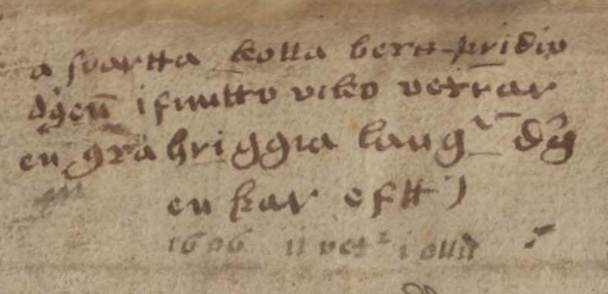 a svartta kolla bera þridio
dgen i siautto viko vetrar
en gra hriggia laugr dg
en kar eftt)
1606 11 vetr i